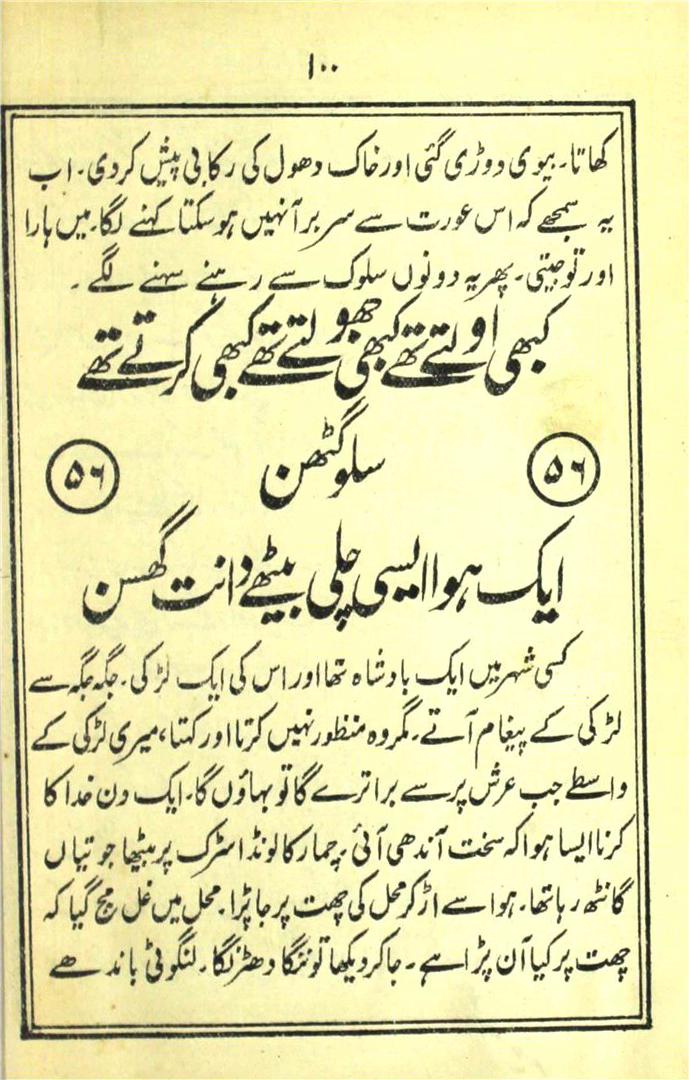 ۱۰۰
کھاتا۔ بیوی دوڑی گئی اور خاک دھول کی رکابی پیش کردی۔ اب
یہ سمجھے کہ اس عورت سے سر برآ نہیں ہوسکتا کہنے لگا۔ میں ہارا
اور تو جیتی۔ پھر یہ دونوں سلوک سے رہنے سہنے لگے۔
کبھی اولتے تھے کبھی جھولتے تھے کبھی کرتے تھے
۵۶ سلوگٹھن ۵۶
ایک ہوا ایسی چلی بیٹھے دانت گھسن
کسی شہر میں ایک بادشاہ تھا اور اس کی ایک لڑکی۔ جگہ جگہ سے
لڑکی کے پیغام آتے۔ مگر وہ منظور نہیں کرتا اور کہتا، میری لڑکی کے
واسطے جب عرش پر سے بر اترے گا تو بہاؤں گا۔ ایک دن خدا کا
کرنا ایسا ہوا کہ سخت آندھی آئی۔ چمار کا لونڈا سڑک پر بیٹھا جوتیاں
گانٹھ رہا تھا۔ ہوا سے اڑ کر محل کی چھت پر جا پڑا۔ محل میں غل مچ گیا کہ
چھت پر کیا آن پڑا ہے۔ جا کر دیکھا تو ننگا دھڑنگا۔ لنگوٹی باندھے